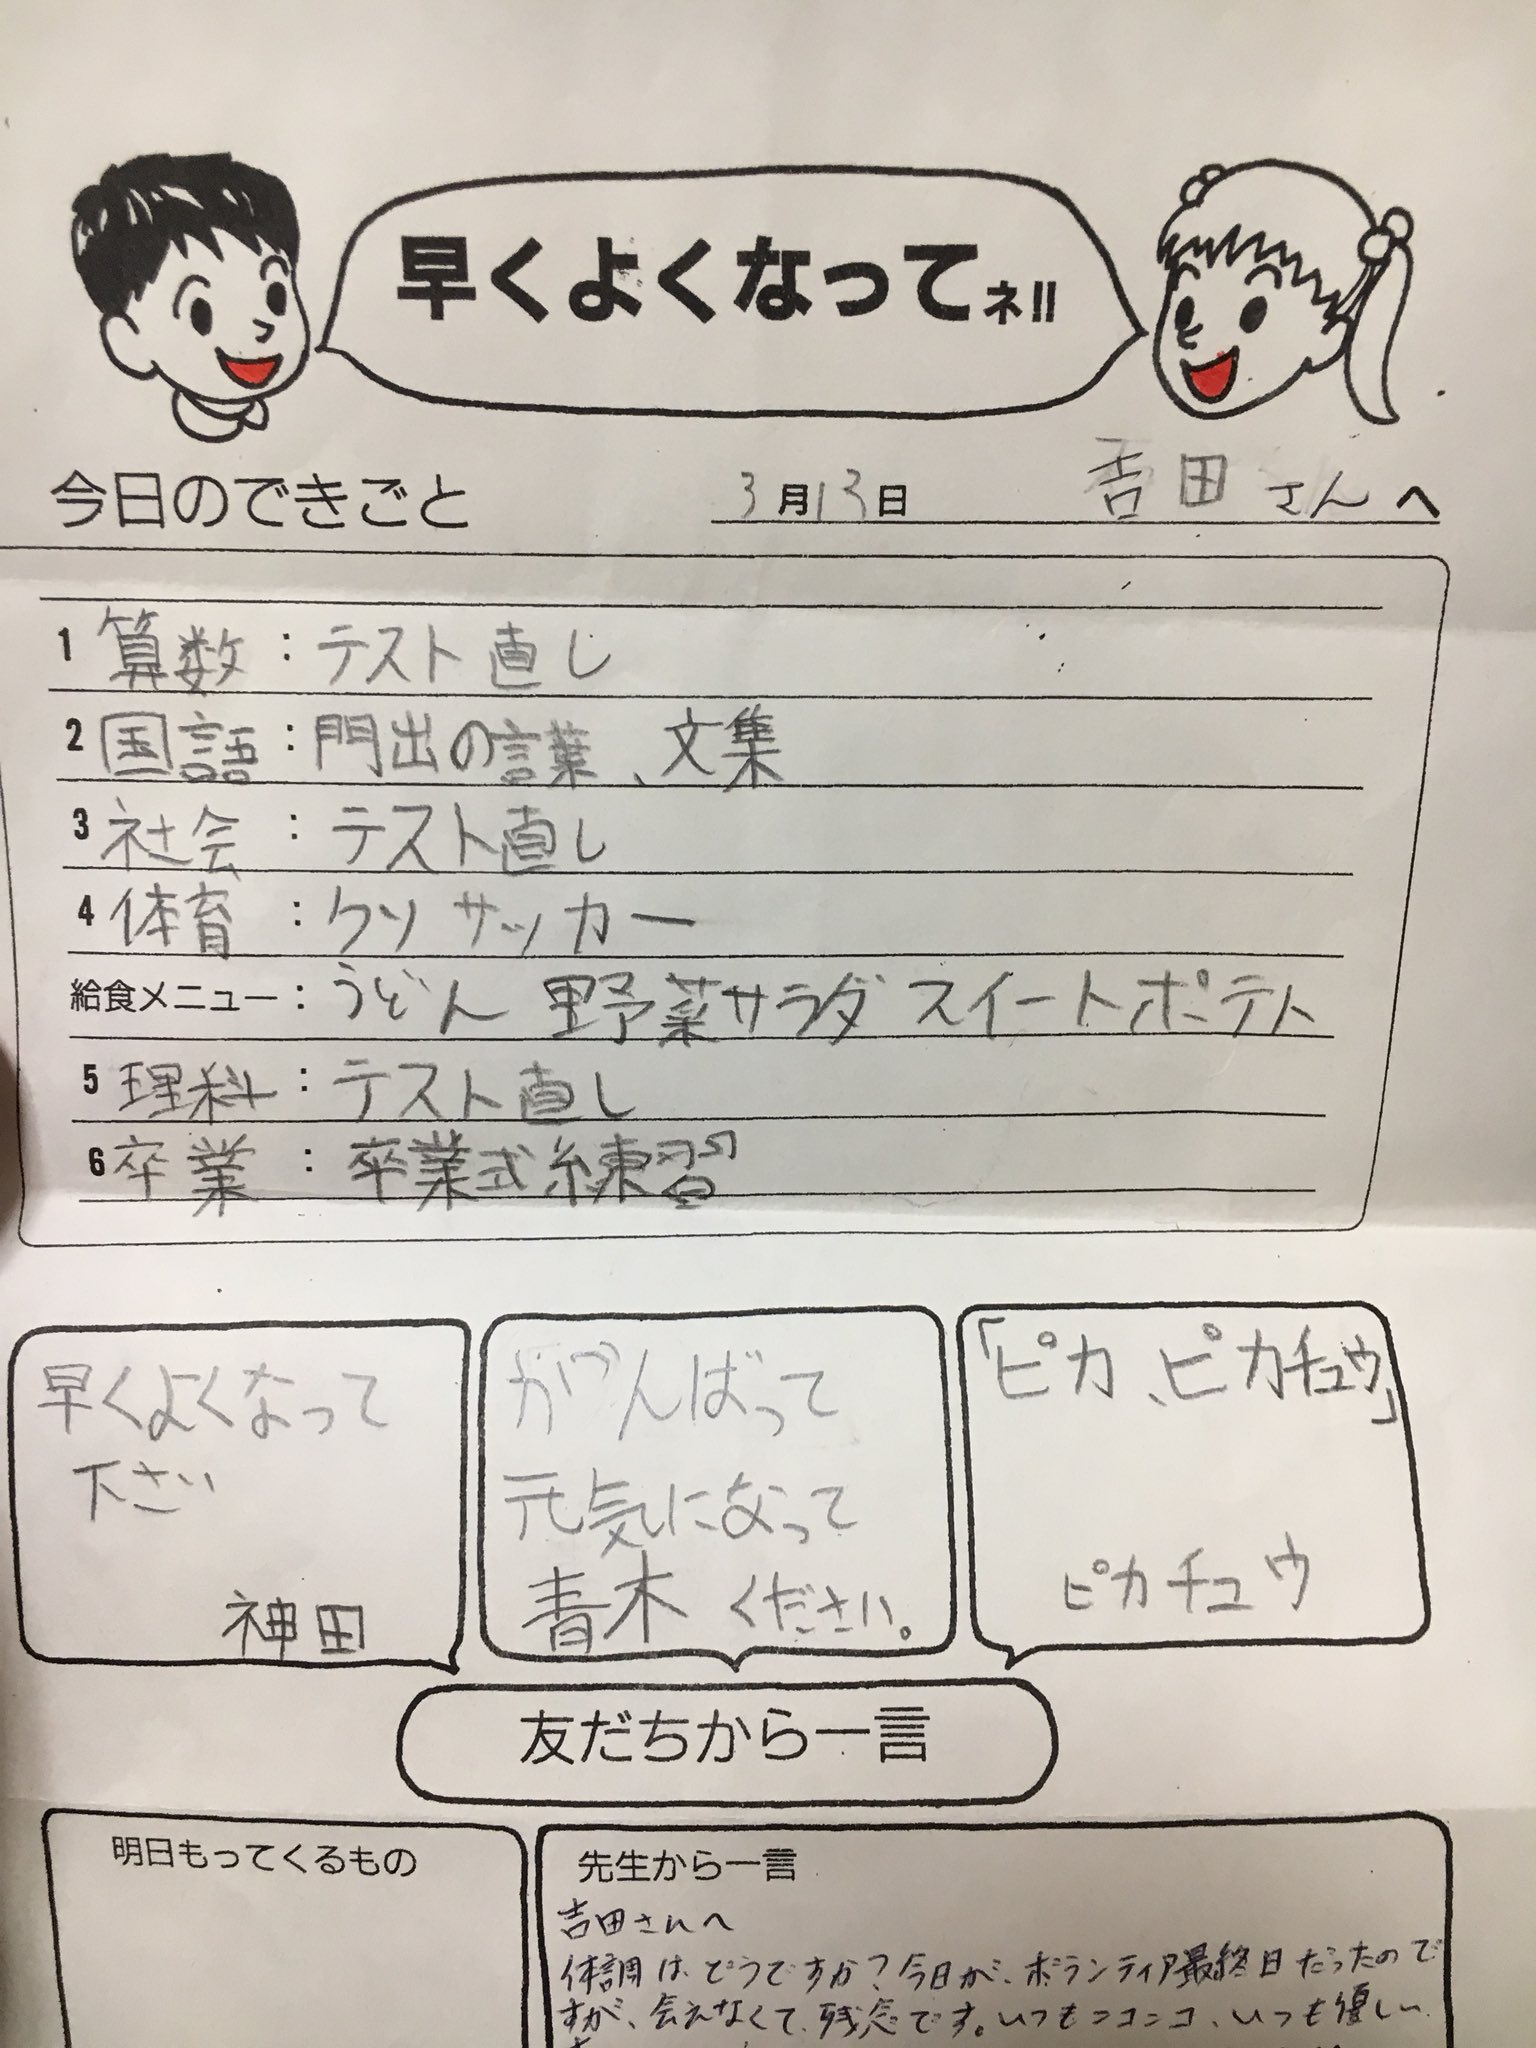 早くよくなってネ!!
今日のできごと 3月13日 吉田さんへ
1 算数：テスト直し
2 国語：門出の言葉、文集
3 社会：テスト直し
4 体育：クソサッカー
給食メニュー：うどん 野菜サラダ スイートポテト
5 理科：テスト直し
6 卒業：卒業式練習
早くよくなって
下さい
神田
がんばって
元気になって
青木 ください。
「ピカ、ピカチュウ」
ピカチュウ
友だちから一言
明日もってくるもの
先生から一言
吉田さんへ
体調はどうですか？今日が、ボランティア最終日だったので
すが、会えなくて残念です。いつもニコニコ、いつも優しい